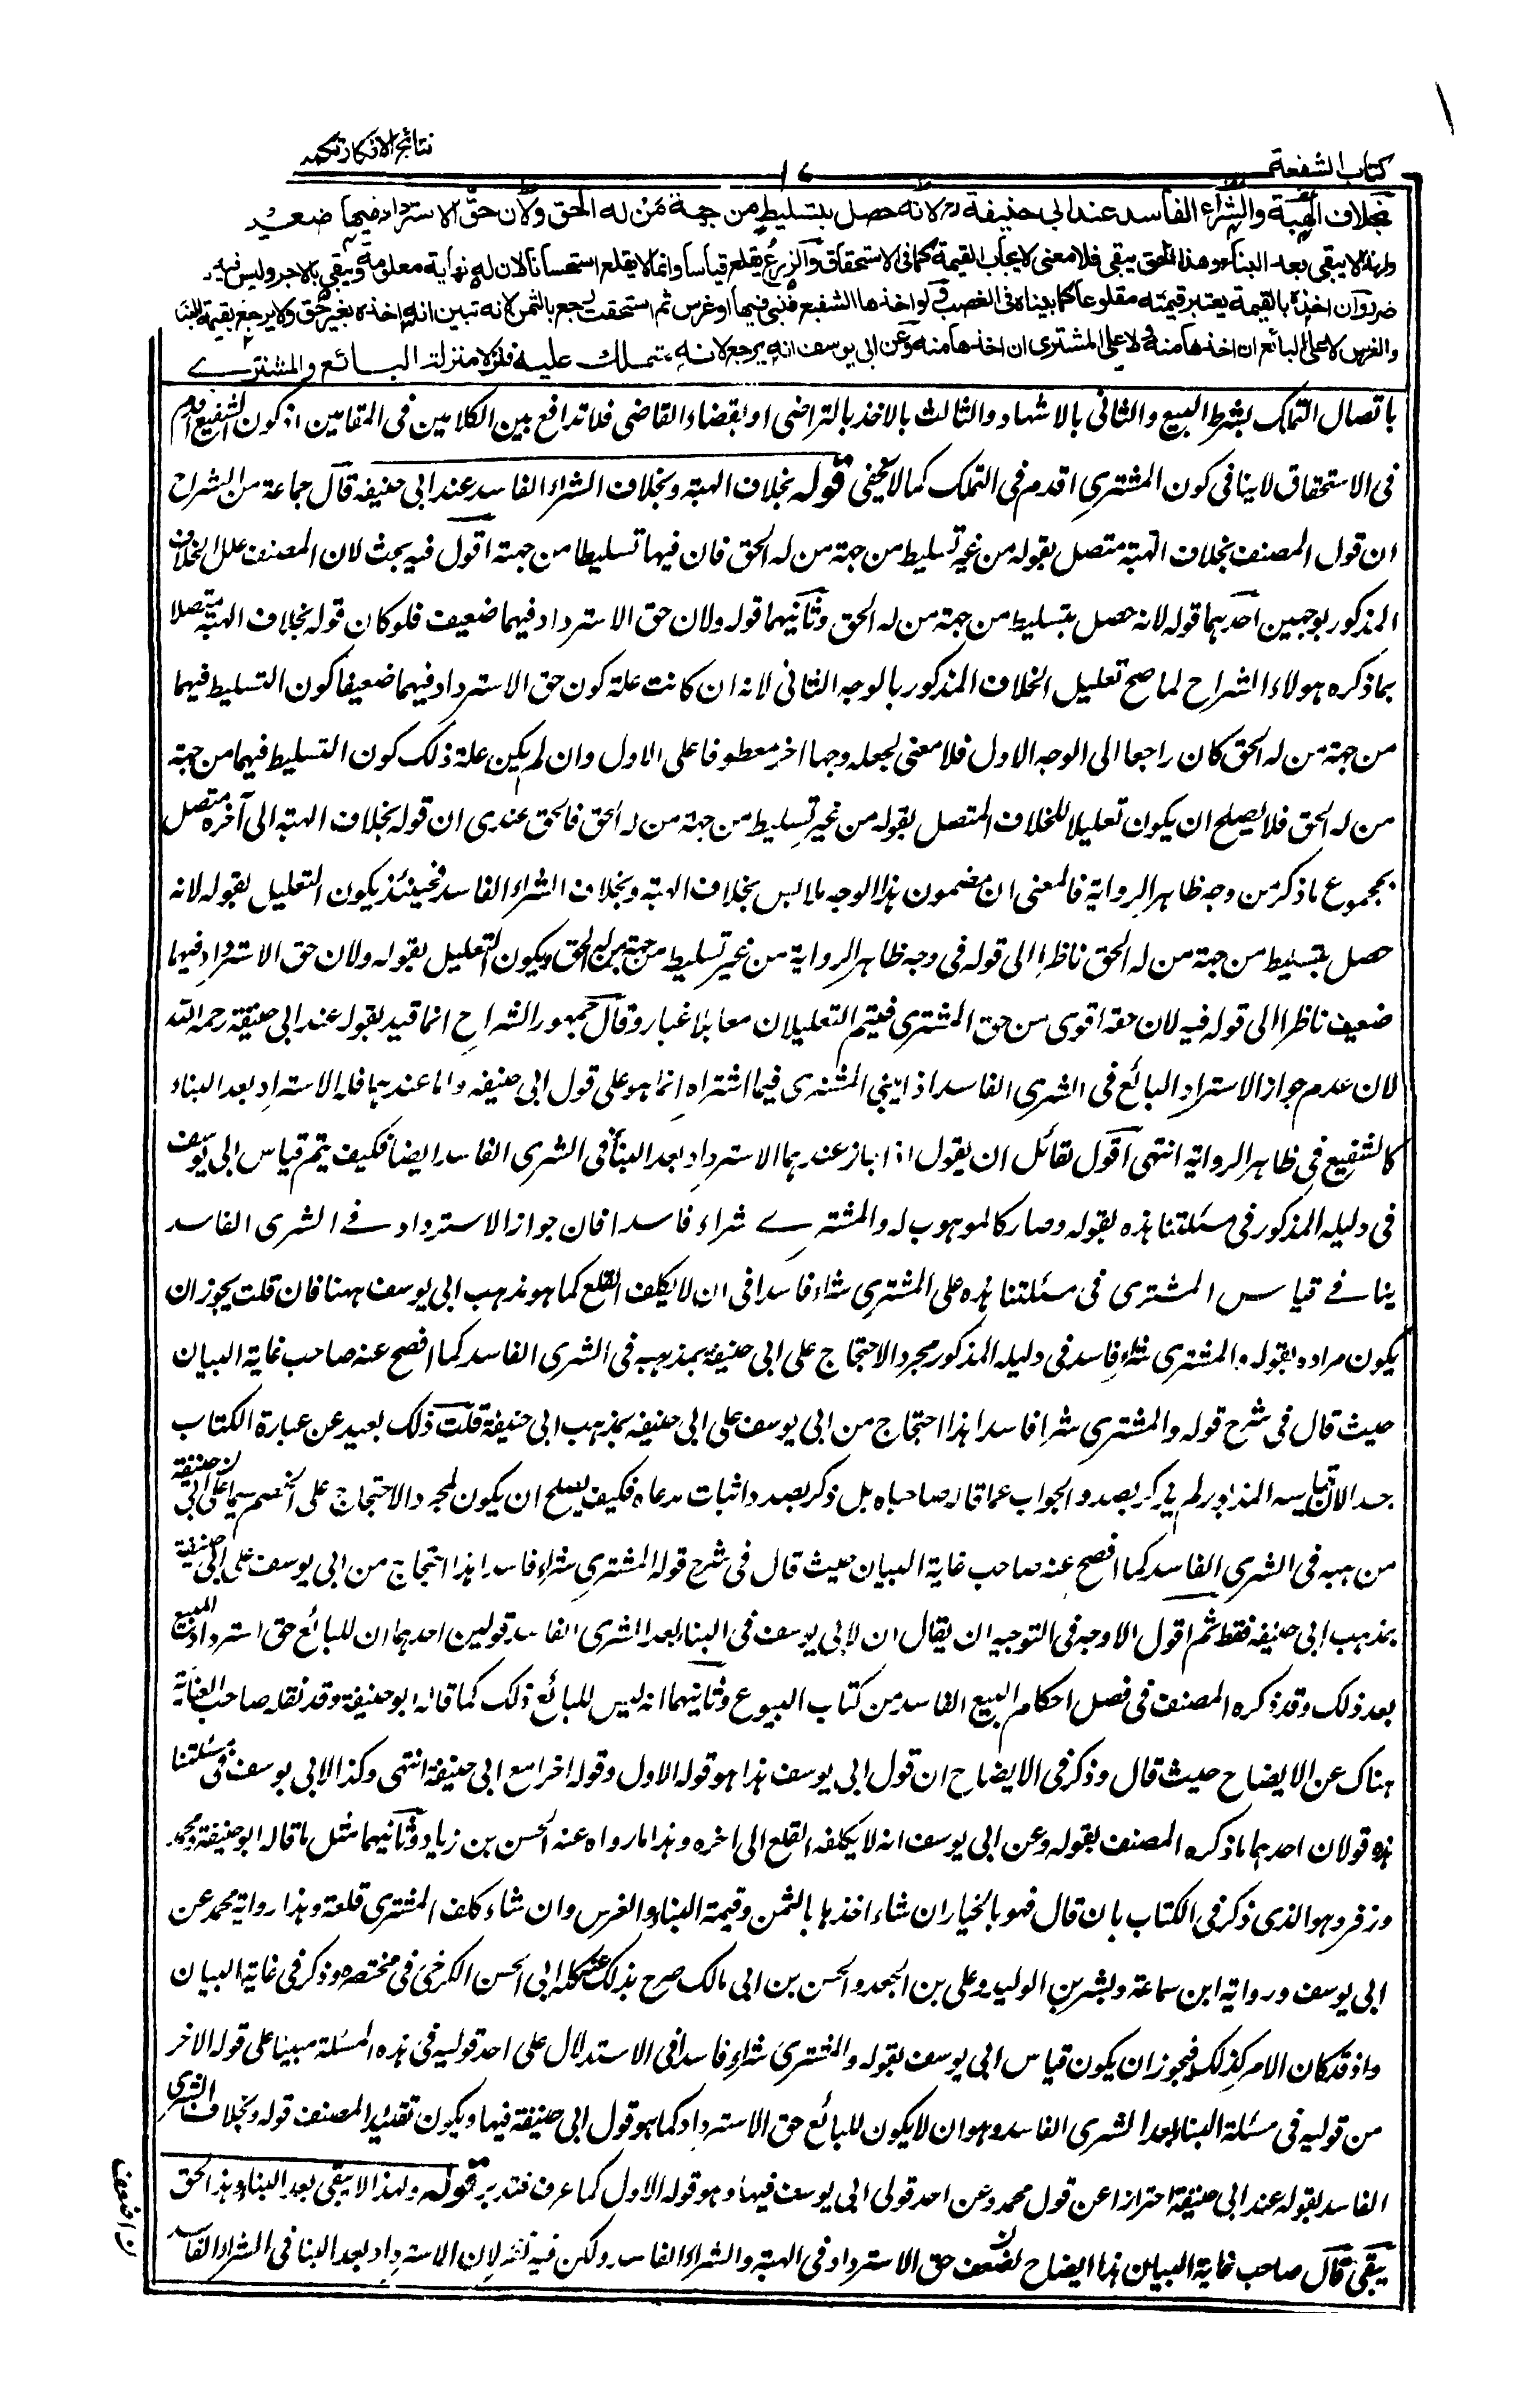 كتاب الشفعة
١٤
نتائج الافكار تكمله
بخلاف الهبة والشراء الفاسد عند ابي حنيفة رح لانه حصل بتسليط من جهة من له الحق ولان حق الاسترداد فيهما ضعيف
ولهذا لا يبقى بعد البناء وهذا الحق يبقى فلا معنى لايجاب القيمة كما في الاستحقاق والزرع يقلع قياسا وانما لا يقلع استحسانا لان له نهاية معلومة ويبقى بالاجر وليس فيه
ضرر وان اخذه بالقيمة يعتبر قيمته مقلوعا كما بيناه في الغصب ولو اخذها الشفيع فبنى فيها او غرس ثم استحقت رجع بالثمن لانه تبين انه اخذه بغير حق ولا يرجع بقيمة البناء
والغرس لا على البائع ان اخذها منه ولا على المشتري ان اخذها منه وعن ابي يوسف انه يرجع لانه متملك عليه فنزلا منزلة البائع والمشتري
باتصال التملك بشرط البيع والثاني بالاشهاد والثالث بالاخذ بالتراضي او بقضاء القاضي فلا تدافع بين الكلامين في المقامين اذ كون الشفيع اقدم
في الاستحقاق لا ينافي كون المشتري اقدم في التملك كما لا يخفى قوله بخلاف الهبة وبخلاف الشراء الفاسد عند ابي حنيفه قال جماعة من الشراح
ان قول المصنف بخلاف الهبة متصل بقوله من غير تسليط من جهة من له الحق فان فيها تسليطا من جهته اقول فيه بحث لان المصنف علل الخلاف
المذكور بوجهين احدهما قوله لانه حصل بتسليط من جهة من له الحق وثانيهما قوله ولان حق الاسترداد فيهما ضعيف فلو كان قوله بخلاف الهبة متصلا
بما ذكره هولاء الشراح لما صح تعليل الخلاف المذكور بالوجه الثاني لانه ان كانت علة كون حق الاسترداد فيهما ضعيفا كون التسليط فيهما
من جهة من له الحق كان راجعا الى الوجه الاول فلا معنى لجعله وجها اخر معطوفا على الاول وان لم يكن علة ذلك كون التسليط فيهما من جهة
من له الحق فلا يصلح ان يكون تعليلا للخلاف المتصل بقوله من غير تسليط من جهة من له الحق فالحق عندي ان قوله بخلاف الهبة الى آخره متصل
بمجموع ما ذكر من وجه ظاهر الرواية فالمعنى ان مضمون هذا الوجه ملابس بخلاف الهبة وبخلاف الشراء الفاسد فحينئذ يكون التعليل بقوله لانه
حصل بتسليط من جهة من له الحق ناظرا الى قوله في وجه ظاهر الرواية من غير تسليط من جهة من له الحق ويكون التعليل بقوله ولان حق الاسترداد فيهما
ضعيف ناظرا الى قوله فيه لان حقه اقوى من حق المشتري فيتم التعليلان معا بلا غبار وقال جمهور الشراح انما قيد بقوله عند ابي حنيفة رحمه الله
لان عدم جواز الاسترداد البائع في الشرى الفاسد اذا بنى المشتري فيما اشتراه انما هو على قول ابي حنيفه واما عندهما فله الاسترداد بعد البناء
كالشفيع في ظاهر الرواية انتهى اقول لقائل ان يقول اذا جاز عندهما الاسترداد بعد البناء في الشرى الفاسد ايضا فكيف يتم قياس ابي يوسف
في دليله المذكور في مسئلتنا هذه بقوله وصار كالموهوب له والمشتري شراء فاسدا فان جواز الاسترداد في الشرى الفاسد
ينافي قياس المشتري في مسئلتنا هذه على المشتري شراء فاسدا في ان لا يكلف القلع كما هو مذهب ابي يوسف ههنا فان قلت يجوز ان
يكون مراده بقوله والمشتري شراء فاسد في دليله المذكور مجرد الاحتجاج على ابي حنيفة بمذهبه في الشرى الفاسد كما افصح عنه صاحب غاية البيان
حيث قال في شرح قوله والمشتري شرا فاسدا هذا احتجاج من ابي يوسف على ابي حنيفه بمذهب ابي حنيفة قلت ذلك بعيد عن عبارة الكتاب
جدا لان قياسه المذكور لم يذكر بصدد الجواب عما قاله صاحباه بل ذكر بصدد اثبات مدعاه فكيف يصلح ان يكون لمجرد الاحتجاج على الخصم سيما على ابي حنيفة
من هبه في الشرى الفاسد كما افصح عنه صاحب غاية البيان حيث قال في شرح قوله المشتري شراء فاسدا هذا احتجاج من ابي يوسف على ابي حنيفة
بمذهب ابي حنيفه فقط ثم اقول الاوجه في التوجيه ان يقال ان لابي يوسف في البناء بعد الشرى الفاسد قولين احدهما ان للبائع حق استرداد المبيع
بعد ذلك وقد ذكره المصنف في فصل احكام البيع الفاسد من كتاب البيوع وثانيهما انه ليس للبائع ذلك كما قاله ابو حنيفة وقد نقله صاحب العناية
هناك عن الايضاح حيث قال وذكر في الايضاح ان قول ابي يوسف هذا هو قوله الاول وقوله اخرا مع ابي حنيفة انتهى وكذا لابي يوسف في مسئلتنا
هذه قولان احدهما ما ذكره المصنف بقوله وعن ابي يوسف انه لا يكلفه القلع الى اخره وهذا ما رواه عنه الحسن بن زياد وثانيهما مثل ما قاله ابو حنيفة ومحمد
وزفر وهو الذي ذكر في الكتاب بان قال فهو بالخيار ان شاء اخذها بالثمن وقيمة البناء والغرس وان شاء كلف المشتري قلعه وهذا رواية محمد عن
ابي يوسف ورواية ابن سماعة وبشر بن الوليد وعلي بن الجعد والحسن بن ابي مالك صرح بذلك كله ابي الحسن الكرخي في مختصره وذكر في غاية البيان
واذ قد كان الامر كذلك فيجوز ان يكون قياس ابي يوسف بقوله والمشتري شراء فاسدا في الاستدلال على احد قوليه في هذه المسئلة مبنيا على قوله الاخر
من قوليه في مسئلة البناء بعد الشرى الفاسد وهو ان لا يكون للبائع حق الاسترداد كما هو قول ابي حنيفة فيها ويكون تقييد المصنف قوله وبخلاف الشرى
الفاسد بقوله عند ابي حنيفة احترازا عن قول محمد وعن احد قولي ابي يوسف فيها وهو قوله الاول كما عرف فتدبر قوله ولهذا لا يبقى بعد البناء وهذا الحق
يبقى قال صاحب غاية البيان هذا ايضاح لضعف حق الاسترداد في الهبة والشراء الفاسد ولكن فيه نظر لان الاسترداد بعد البنا في الشراء الفاسد